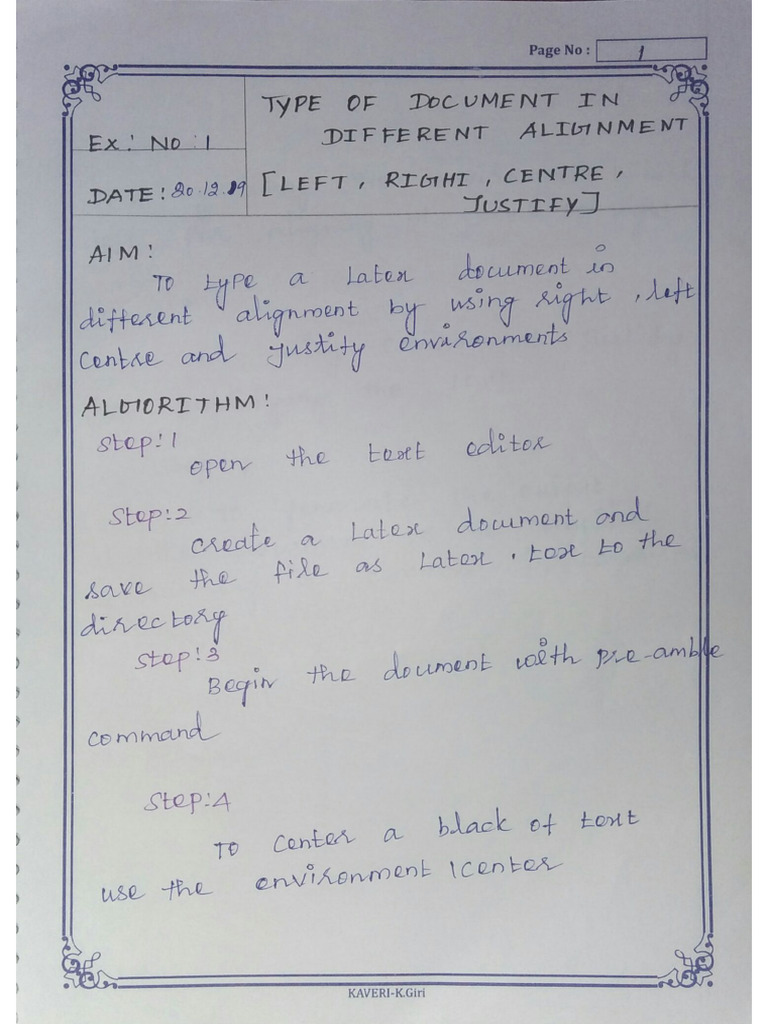 Page No : 1
TYPE OF DOCUMENT IN
Ex: NO : 1
DIFFERENT ALIGNMENT
DATE: 20.12.19
[LEFT, RIGHT, CENTRE,
JUSTIFY]
AIM:
To type a Latex document in
different alignment by using right, left
centre and justify environments
ALGORITHM:
Step:1
open the text editor
Step:2
create a Latex document and
save the file as Latex.tex to the
directory
Step:3
Begin the document with pre-amble
command
Step:4
To center a black of text
use the environment \center
KAVERI-K.Giri